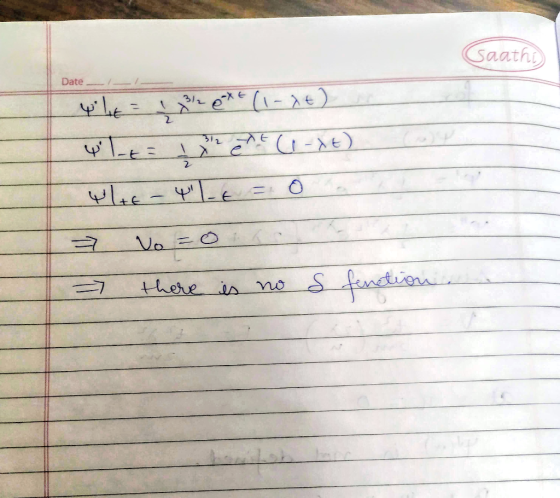 Saathi
Date __/__/____
ψ'|₊ε = 1/2 λ^{3/2} e^{-λε} (1 - λε)
ψ'|₋ε = 1/2 λ^{3/2} e^{-λε} (1 - λε)
ψ'|₊ε - ψ'|₋ε = 0
⇒ V₀ = 0
⇒ there is no δ function.